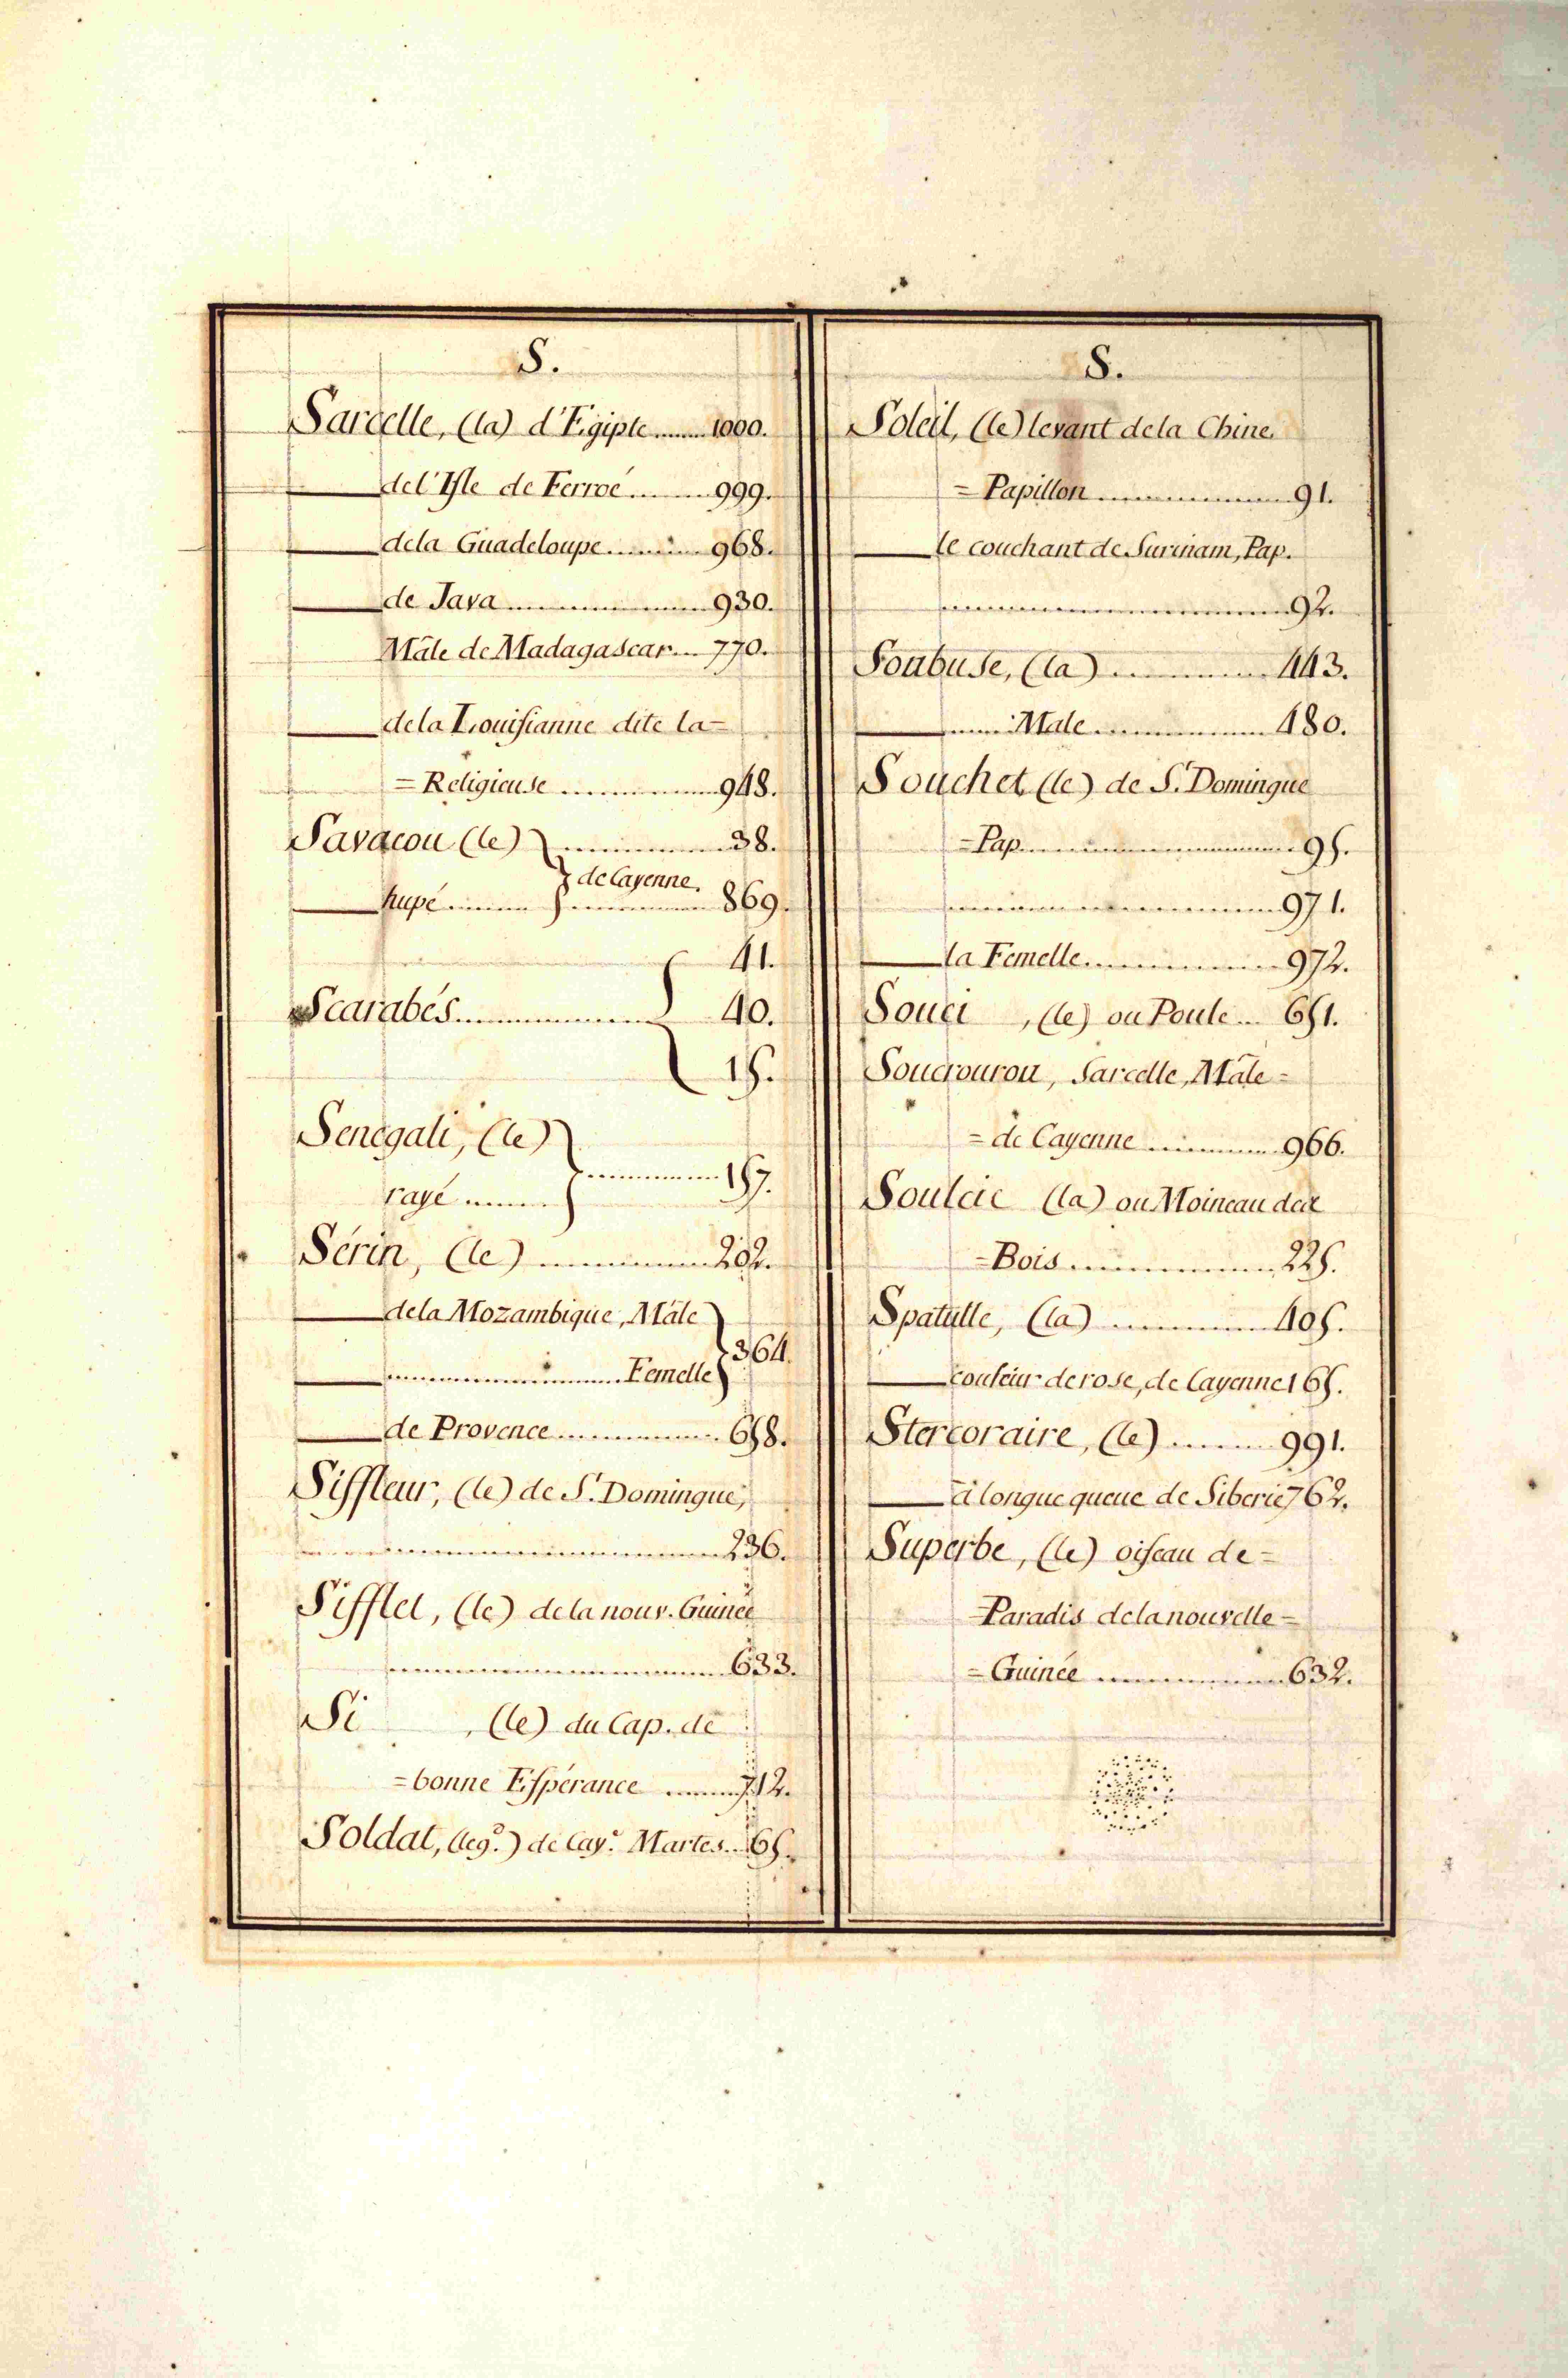 S.
Sarcelle, (la) d'Egipte ........ 1000.
____ de l'Isle de Ferroé ........ 999.
____ dela Guadeloupe ........ 968.
____ de Java ........ 930.
Mâle de Madagascar ... 770.
____ dela Louisianne dite la=
= Religieuse ........ 948.
Savacou (le) } ........ 38.
} de Cayenne.
____ hupé ........ } ........ 869.
41.
Scarabés ........ { 40.
15.
Senegali, (le) }
} ........ 157.
rayé ........ }
Sérin, (le) ........ 202.
____ dela Mozambique, Mâle }
} 364.
____ ........ Femelle }
____ de Provence ........ 658.
Siffleur, (le) de S.t Domingue,
........ 236.
Sifflet, (le) dela nouv. Guinée
........ 633.
Si , (le) du Cap. de
= bonne Espérance ........ 712.
Soldat, (le g.d) de Cay.e Martes .. 65.
S.
Soleil, (le) levant dela Chine
= Papillon ........ 91.
____ le couchant de Surinam, Pap.
........ 92.
Soubuse, (la) ........ 443.
____ ........ Male ........ 480.
Souchet (le) de S.t Domingue
= Pap. ........ 95.
........ 971.
____ la Femelle ........ 972.
Souci , (le) ou Poule ... 651.
Soucrourou, Sarcelle, Mâle =
= de Cayenne ........ 966.
Soulcie (la) ou Moineau de
= Bois ........ 225.
Spatulle, (la) ........ 405.
____ couleur de rose, de Cayenne 165.
Stercoraire, (le) ........ 991.
____ à longue queue de Siberie 762.
Superbe, (le) oiseau de =
= Paradis dela nouvelle =
= Guinée ........ 632.